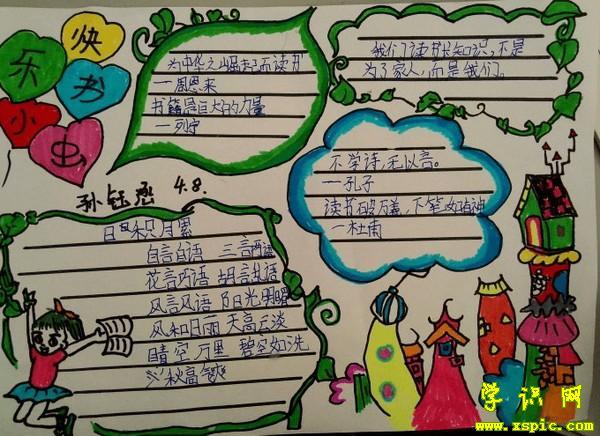 快
乐书
小虫
为中华之崛起而读书
一周恩来
书籍是巨大的力量
一列宁
我们读书长知识，不是
为了家人，而是我们。
不学诗，无以言。
一孔子
读书破万卷，下笔如有神
一杜甫
孙钰涵 4.8.
日积月累
自言自语 三言两语
花言巧语 胡言乱语
风言风语 阳光明媚
风和日丽 天高云淡
晴空万里 碧空如洗
秋高气爽
学识网
www.xspic.com